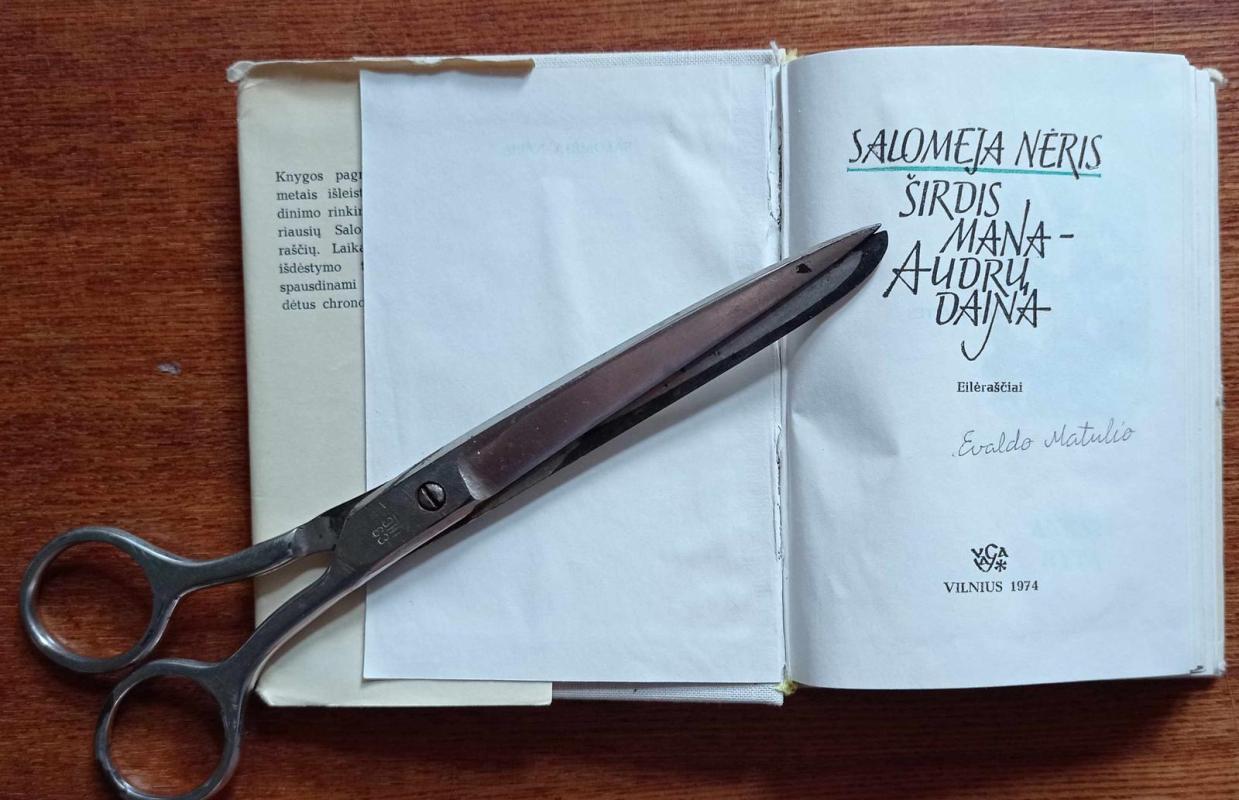 Knygos pagr
metais išleist
dinimo rinkin
riausių Salo
raščių. Laika
išdėstymo
spausdinami
dėtus chrono
SALOMĖJA NĖRIS
ŠIRDIS
MANA-
AUDRŲ
DAINA
Eilėraščiai
Evaldo Matulio
VAGA
VILNIUS 1974